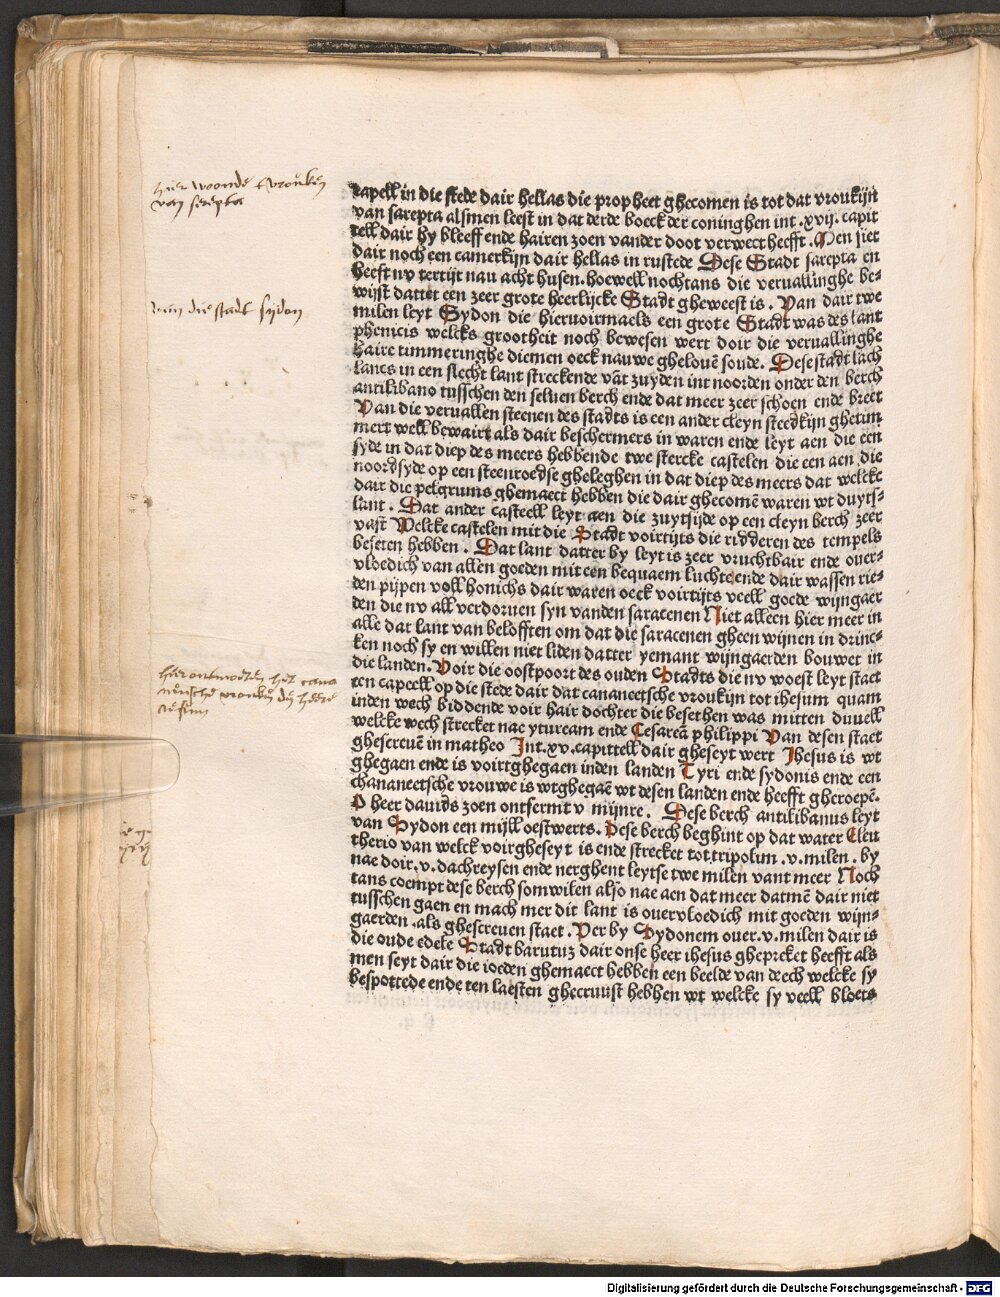 hier woonde t vrouken
van serepta
van die stadt sydon
hier ontmoeten het cana
neusche vrouken dē heere
Jesum
capell in die stede dair hellas die propheet ghecomen is tot dat vroukijn
van sarepta alsmen leest in dat derde boeck der coninghen int .xvij. capit
tell dair hy bleeff ende hairen zoen vander doot verwect heefft. Men siet
dair noch een camerkijn dair hellas in rustede Dese Stadt sarepta en
heeft nv tertijt nau acht husen. hoewell nochtans die veruallinghe be-
wijst dattet een zeer grote heerlijcke Stadt gheweest is. Van dair twe
milen leyt Sydon die hiervoirmaels een grote Stadt was des lant
phenicis welcks grootheit noch bewesen wert doir die veruallinghe
haire timmeringhe diemen oeck nauwe ghelouē soude. Dese stadt lach
lancs in een slecht lant streckende vāt zuyden int noorden onder den berch
antilibano tusschen den seluen berch ende dat meer zeer schoen ende breet
Van die veruallen steenen des stadts is een ander cleyn steedkijn ghetim
mert well bewairt als dair beschermers in waren ende leyt aen die een
syde in dat diep des meers hebbende twe stercke castelen die een aen die
noordsyde op een steenroedse gheleghen in dat diep des meers dat welcke
dair die pelgrums ghemaect hebben die dair ghecomē waren wt duytf-
lant. Dat ander casteell leyt aen die zuytsijde op een cleyn berch zeer
vast Welcke castelen mit die Stadt voirtijts die ridderen des tempels
beseten hebben. Dat lant datter by leyt is zeer vruchtbair ende ouer-
vloedich van allen goeden mit een bequaem luchte ende dair wassen rie-
den pijpen voll honichs dair waren oeck voirtijts veell goede wijngaer
den die nv all verdoruen syn vanden saracenen Niet alleen hier meer in
alle dat lant van belofften om dat die saracenen gheen wijnen in drinc-
ken noch sy en willen niet liden datter yemant wijngaerden bouwet in
die landen. Voir die oostpoort des ouden Stadts die nv woest leyt staet
een capeell op die stede dair dat cananeetsche vroukijn tot ihesum quam
inden wech biddende voir hair dochter die besethen was mitten duuell
welcke wech strecket nae ytuream ende Cesareā philippi Van desen staet
ghescreuē in matheo Int .xv. capittell dair gheseyt wert Jhesus is wt
ghegaen ende is voirtghegaen inden landen Tyri ende sydonis ende een
chananeetsche vrouwe is wtghegaē wt desen landen ende heefft gheroepē.
O heer dauids zoen ontfermt v mijnre. Dese berch antilibanus leyt
van Sydon een mijll oestwerts. Dese berch beghint op dat water Eleu
therio van welck voirgheseyt is ende strecket tot tripolim .v. milen. by
nae doir .v. dachreysen ende nerghent leytse twe milen vant meer Noch
tans coempt dese berch somwilen also nae aen dat meer datmē dair niet
tusschen gaen en mach mer dit lant is ouervloedich mit goeden wijn-
gaerden .als ghescreuen staet. Ver by Sydonem ouer .v. milen dair is
die oude edele Stadt barutus dair onse heer ihesus ghepreket heefft als
men seyt dair die ioeden ghemaect hebben een beelde van deech welcke sy
bespottede ende ten laesten ghecruust hebben wt welcke sy veell bloets
Digitalisierung gefördert durch die Deutsche Forschungsgemeinschaft - DFG